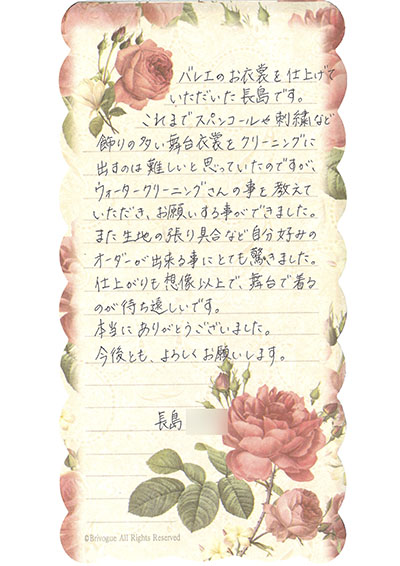 バレエのお衣裳を仕上げて
いただいた長島です。
これまでスパンコールや刺繍など
飾りの多い舞台衣裳をクリーニングに
出すのは難しいと思っていたのですが、
ウォータークリーニングさんの事を教えて
いただき、お願いする事ができました。
また生地の張り具合など自分好みの
オーダーが出来る事にとても驚きました。
仕上がりも想像以上で、舞台で着る
のが待ち遠しいです。
本当にありがとうございました。
今後とも、よろしくお願いします。
長島
©Brivogue All Rights Reserved